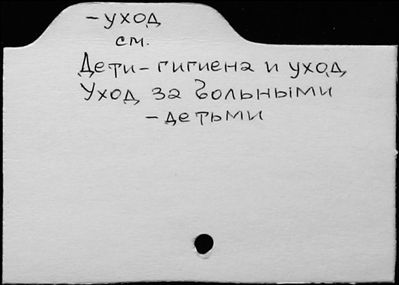 -уход
см.
Дети-гигиена и уход
Уход за больными
-детьми